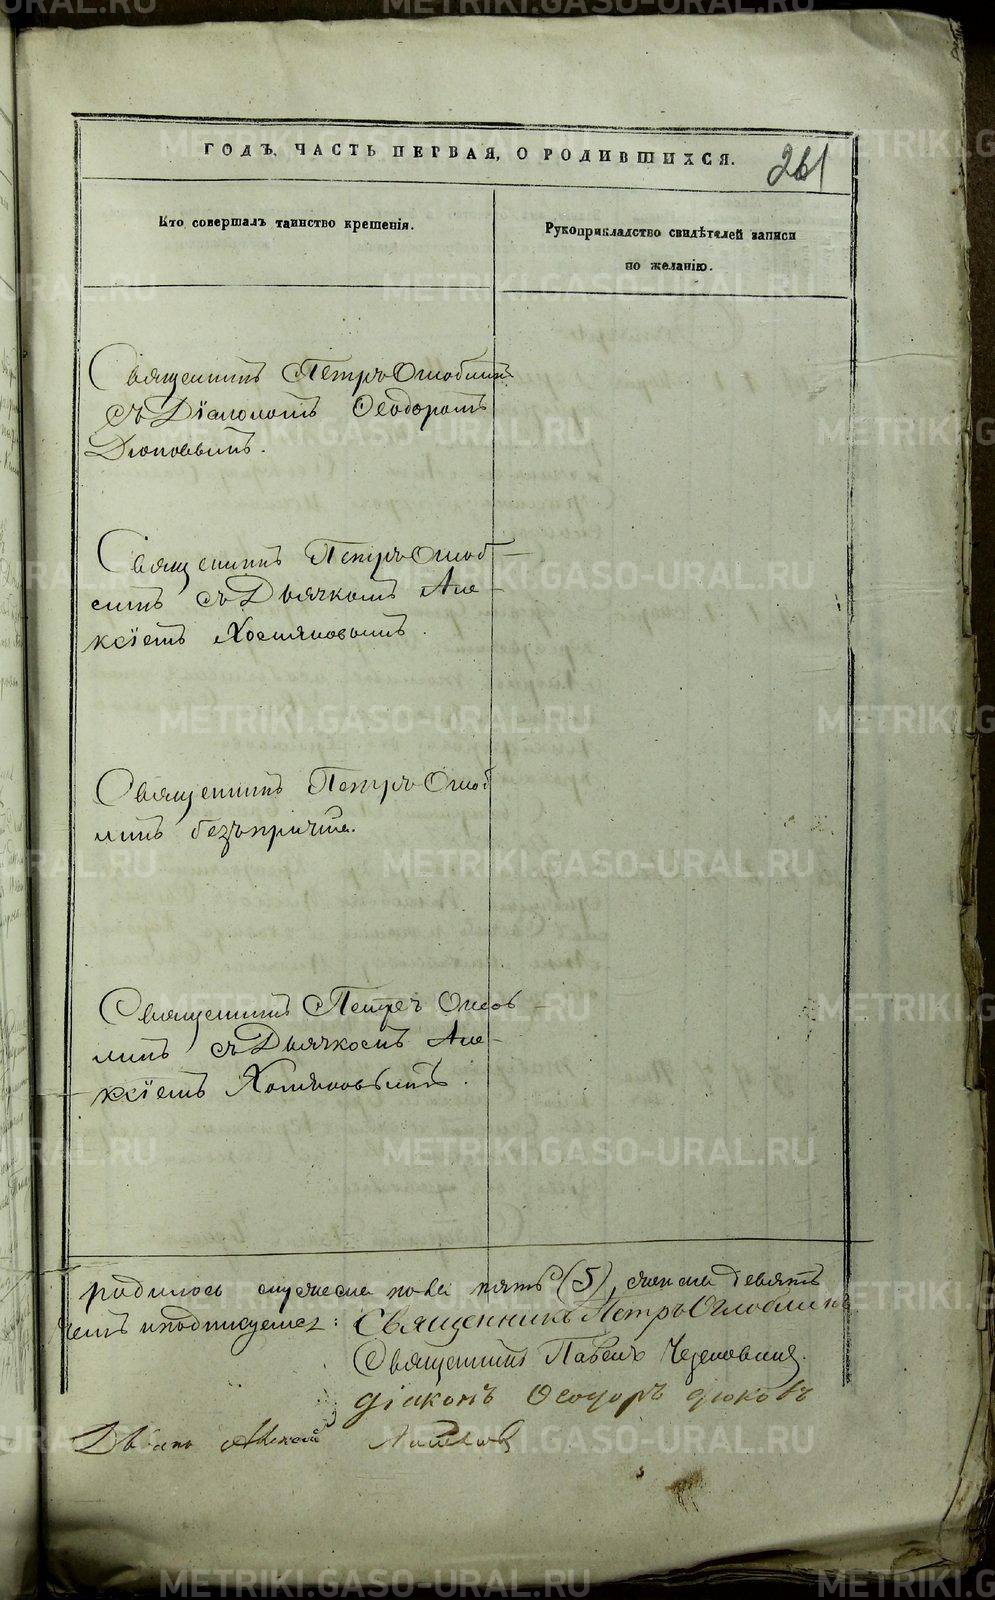 ГОДЪ, ЧАСТЬ ПЕРВАЯ, О РОДИВШИХСЯ.
261
Кто совершалъ таинство крещенія.
Рукоприкладство свидѣтелей записи
по желанію.
Священникъ Петръ Оглоблинъ
съ Діакономъ Ѳеодоромъ
Дюковымъ.
Священникъ Петръ Оглоб
линъ съ Дьячкомъ Але-
ксіемъ Хомяковымъ.
Священникъ Петръ Оглоб
линъ безъ причта.
Священникъ Петръ Оглоб
линъ съ Дьячкомъ Але-
ксіемъ Хомяковымъ.
родилось мужеска пола пять (5), женска девять
чемъ и подписуемся: Священникъ Петръ Оглоблинъ
Священникъ Павелъ
Діаконъ Ѳеодоръ Дюковъ
Дьячекъ Алексей
METRIKI.GASO-URAL.RU